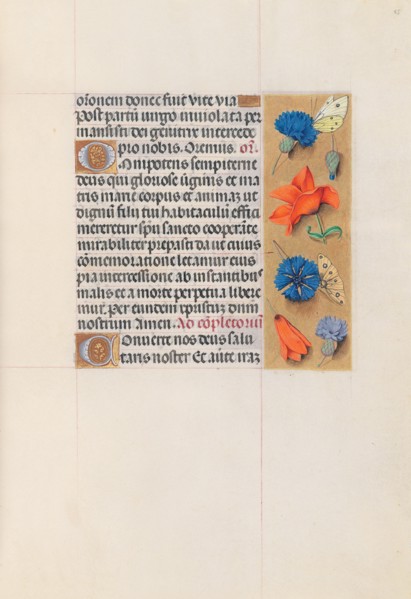 or̃onem donec fuit vite via
Post partũ virgo inviolata per
mansisti dei genitrix intercede
pro nobis. Oremus. or̃.
Omnipotens sempiterne
deus qui gloriose virginis et ma
tris marie corpus et animam ut
dignũ filii tui habitaculũ effici
mereretur spũ sancto cooperãte
mirabiliter preparasti da ut cuius
cõmemoratione letamur eius
pia intercessione ab instantibus
malis et a morte perpetua libere
mur. Per eundem cpristũ dñm
nostrum Amen. Ad cõpletoriũ
Converte nos deus salu
taris noster Et averte iraz